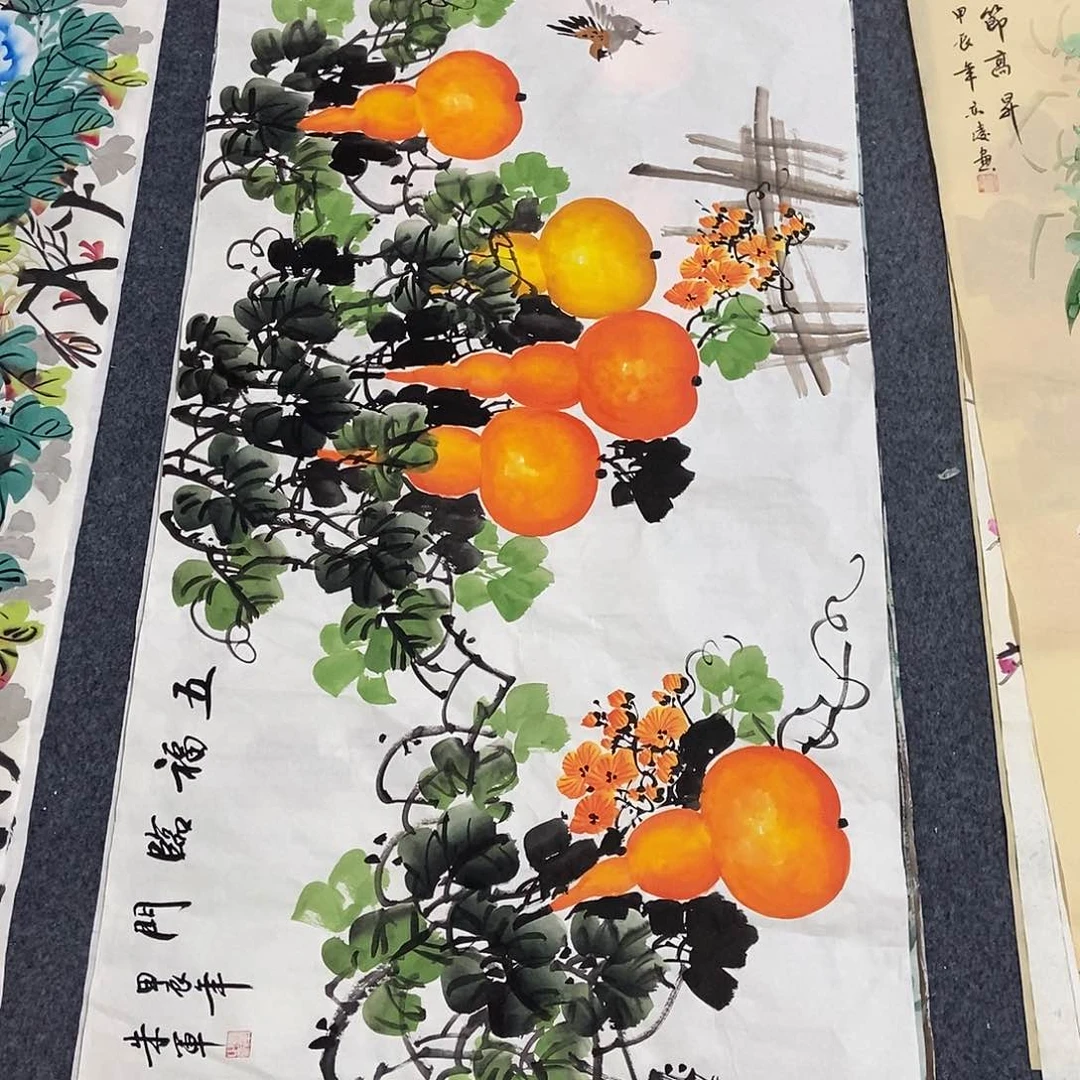 五福臨門
甲辰年
節高昇
甲辰年